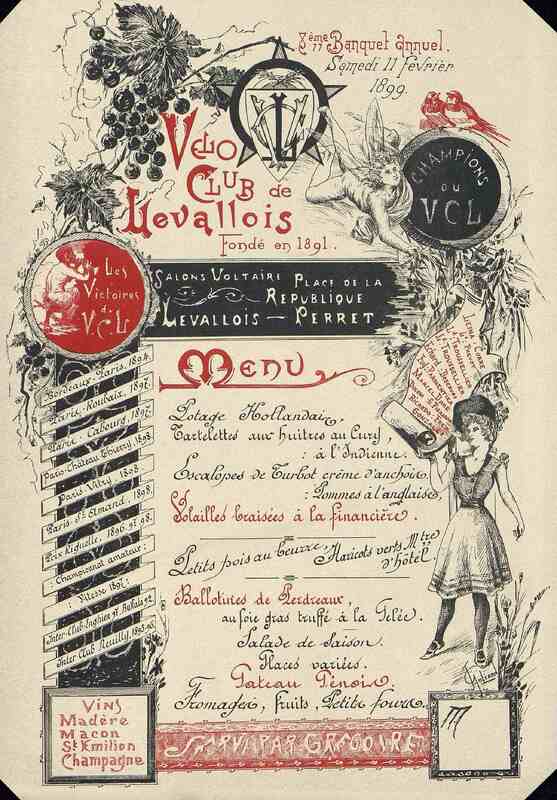 8ème Banquet annuel.
Samedi 11 février
1899.
VELO
CLUB de
Levallois
Fondé en 1891.
CHAMPIONS
DU
VCL
Les
Victoires
du
V.C.L
SALONS VOLTAIRE PLACE DE LA
REPUBLIQUE
LEVALLOIS — PERRET
Menu
Bordeaux-Paris, 1894.
Paris, Roubaix, 1897.
Paris-Cabourg, 1897.
Paris-Château Thierry, 1898.
Paris Vitry, 1898
Championnat amateur:
: Vitesse 1897:
Potage Hollandais,
Tartelettes aux huîtres au Curry,
: à l'Indienne.
Escalopes de Turbot crême d'anchois.
: Pommes à l'anglaise,
Volailles braisées à la financière.
Petits pois au beurre, Haricots verts Mtre
d'hôtel
Ballotines de Perdreaux,
au foie gras truffé à la Gelée.
Salade de saison.
Glaces variées.
Gateau Génois.
Fromages, fruits, Petits fours.
VINS
Madère
Macon
St Emilion
Champagne
M